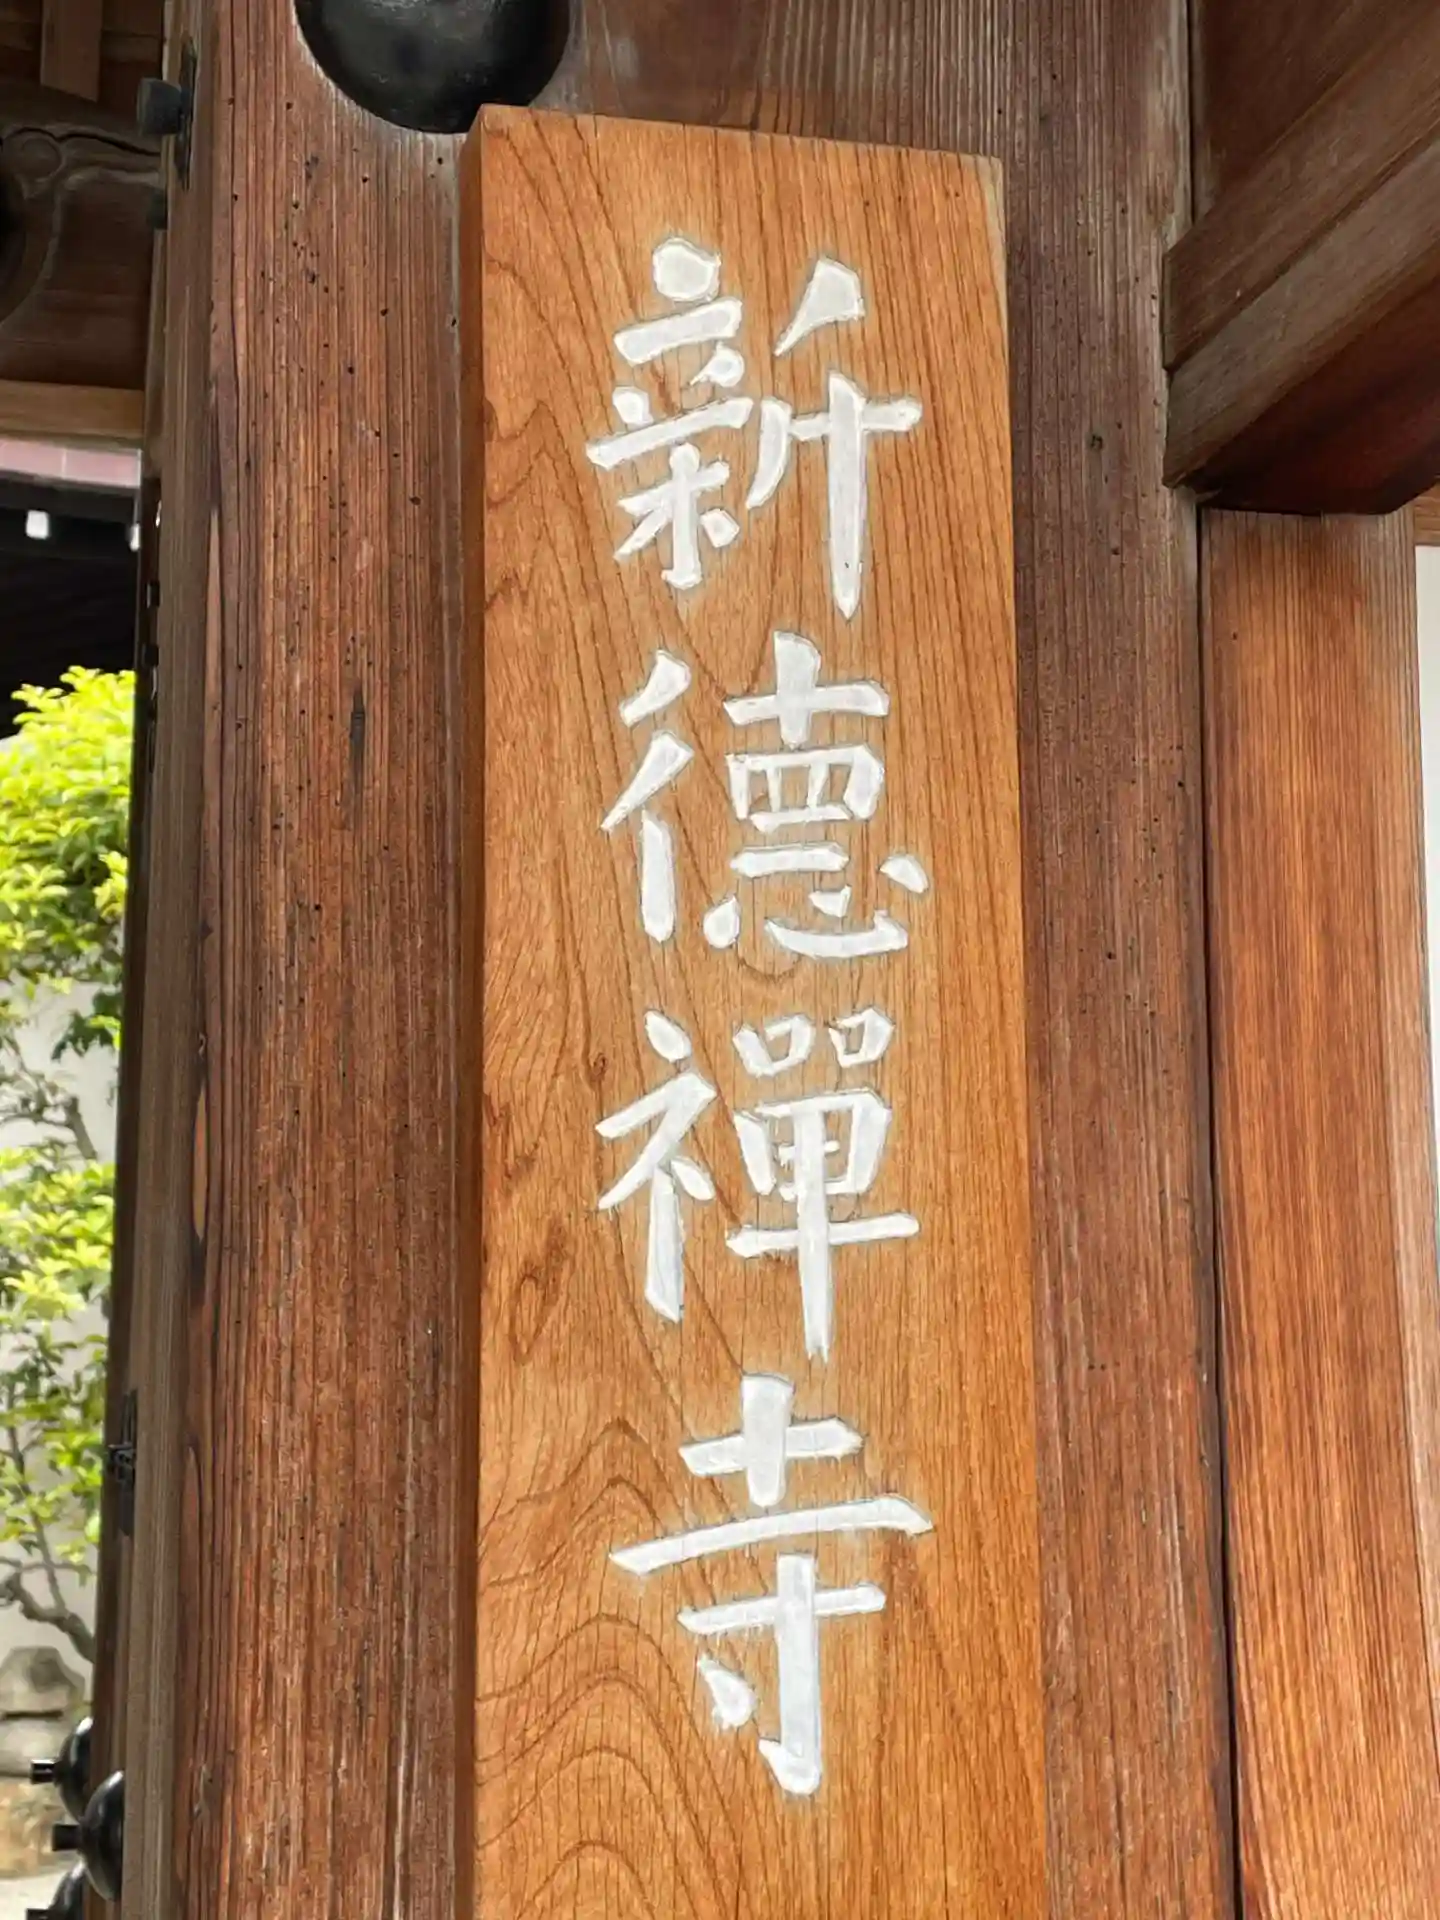 新德禪寺